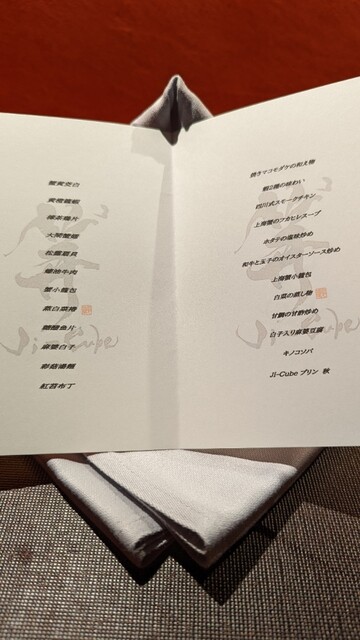 蟹黄茭白
黄橙龍蝦
樟茶鶏片
大閘蟹翅
松露夏貝
蠔油牛肉
蟹小籠包
蒸白菜樽
糖醋魚片
麻婆白子
鮮菇湯麺
紅苕布丁
Ji-Cube
焼きマコモダケの和え物
蝦2種の味わい
四川式スモークチキン
上海蟹のフカヒレスープ
ホタテの塩味炒め
和牛と玉子のオイスターソース炒め
上海蟹小籠包
白菜の蒸し物
甘鯛の甘酢炒め
白子入り麻婆豆腐
キノコソバ
Ji-Cube プリン 秋
Ji-Cube